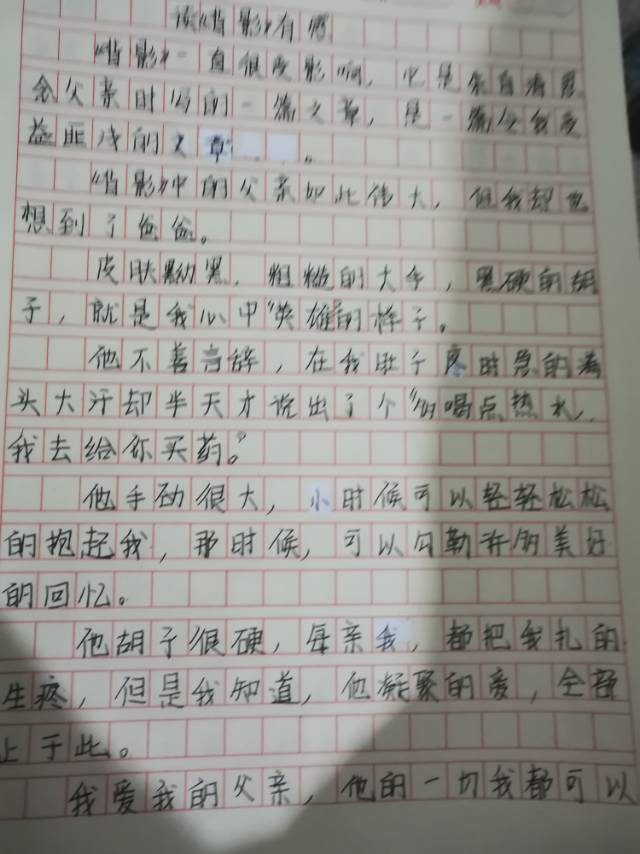 读《背影》有感
《背影》一直很受影响，它是朱自清思
念父亲时写的一篇文章，是一篇令我受
益匪浅的文章。
《背影》中的父亲如此伟大，但我却也
想到了爸爸。
皮肤黝黑，粗糙的大手，黑硬的胡
子，就是我心中"英雄"的样子。
他不善言辞，在我肚子疼时急的满
头大汗却半天才说出了个"多喝点热水，
我去给你买药。"
他手劲很大，小时候可以轻轻松松
的抱起我，那时候，可以勾勒许多美好
的回忆。
他胡子很硬，每亲我，都把我扎的
生疼，但是我知道，他凝聚的爱，全部
上于此。
我爱我的父亲，他的一切我都可以